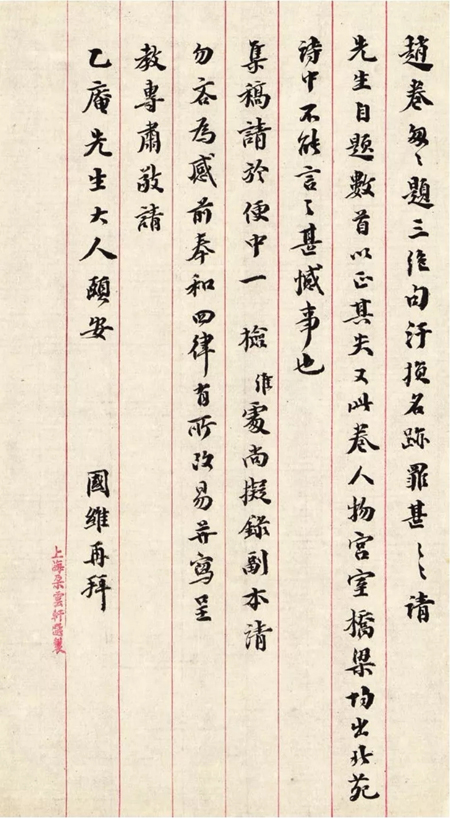 趙卷匆々題三絕句汙損名跡罪甚々々請
先生自題數首以正其失又此卷人物宮室橋梁均出北苑
詩中不能言之甚憾事也
集稿請於便中一 檢 維處尚擬錄副本請
勿吝為感前奉和四律有所改易并寫呈
教專肅敬請
乙庵先生大人頤安
國維再拜
上海朵雲軒